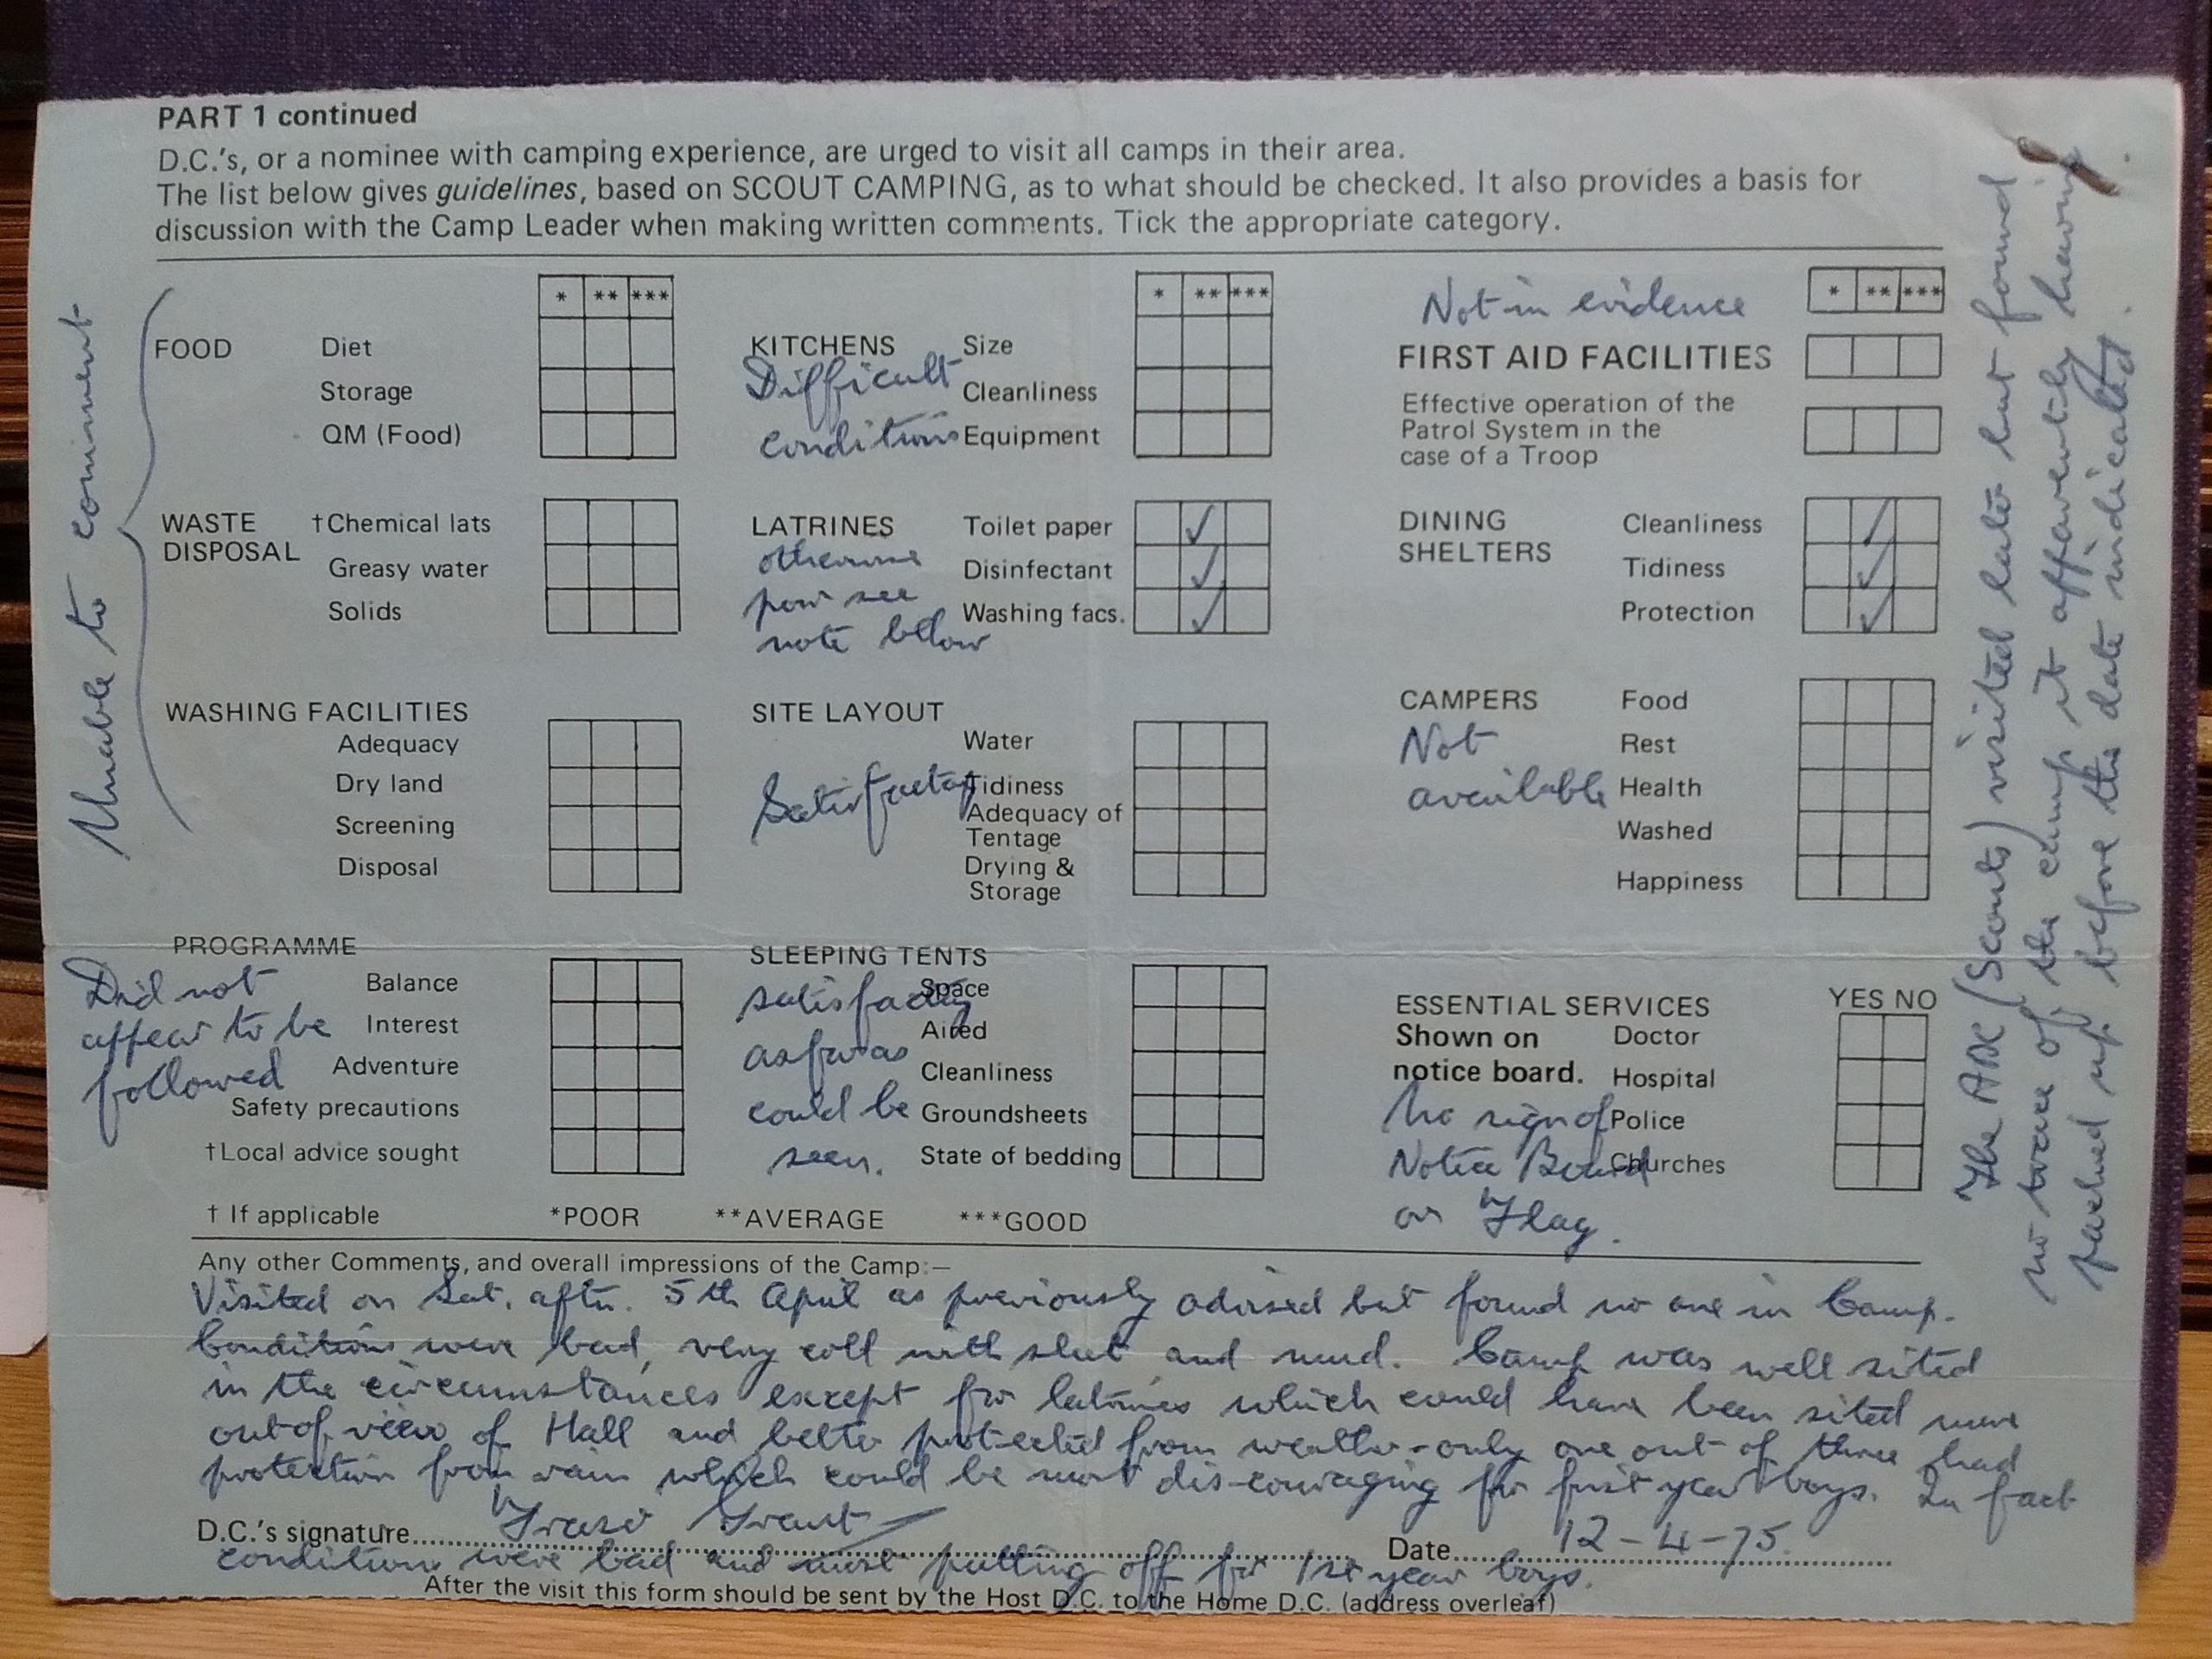 PART 1 continued
D.C.'s, or a nominee with camping experience, are urged to visit all camps in their area.
The list below gives guidelines, based on SCOUT CAMPING, as to what should be checked. It also provides a basis for
discussion with the Camp Leader when making written comments. Tick the appropriate category.
Unable to comment
* ** ***
FOOD Diet
Storage
QM (Food)
WASTE DISPOSAL †Chemical lats
Greasy water
Solids
WASHING FACILITIES
Adequacy
Dry land
Screening
Disposal
PROGRAMME
Did not
appear to be
followed
Balance
Interest
Adventure
Safety precautions
†Local advice sought
* ** ***
KITCHENS Size
Difficult
conditions
Cleanliness
Equipment
LATRINES Toilet paper ✓
otherwise
poor see
note below
Disinfectant ✓
Washing facs. ✓
SITE LAYOUT
Satisfactory
Water
Tidiness
Adequacy of
Tentage
Drying &
Storage
SLEEPING TENTS
satisfactory
as far as
could be
seen.
Space
Aired
Cleanliness
Groundsheets
State of bedding
Not in evidence
* ** ***
FIRST AID FACILITIES
Effective operation of the
Patrol System in the
case of a Troop
DINING SHELTERS
Cleanliness ✓
Tidiness ✓
Protection ✓
CAMPERS
Not
available
Food
Rest
Health
Washed
Happiness
ESSENTIAL SERVICES YES NO
Shown on
notice board.
Doctor
Hospital
Police
Churches
No sign of
Notice Board
or Flag.
The ADC (Scouts) visited late but found
no trace of the camp it apparently having
packed up before the date indicated.
† If applicable *POOR **AVERAGE ***GOOD
Any other Comments, and overall impressions of the Camp:—
Visited on Sat. aftn. 5th April as previously advised but found no one in Camp.
Conditions were bad, very cold with sleet and mud. Camp was well sited
in the circumstances except for latrines which could have been sited more
out of view of Hall and better protected from weather - only one out of three had
protection from rain which could be most dis-couraging for first year boys. In fact
D.C.'s signature Fraser Grant Date 12-4-75.
conditions were bad and most putting off for 1st year boys.
After the visit this form should be sent by the Host D.C. to the Home D.C. (address overleaf)